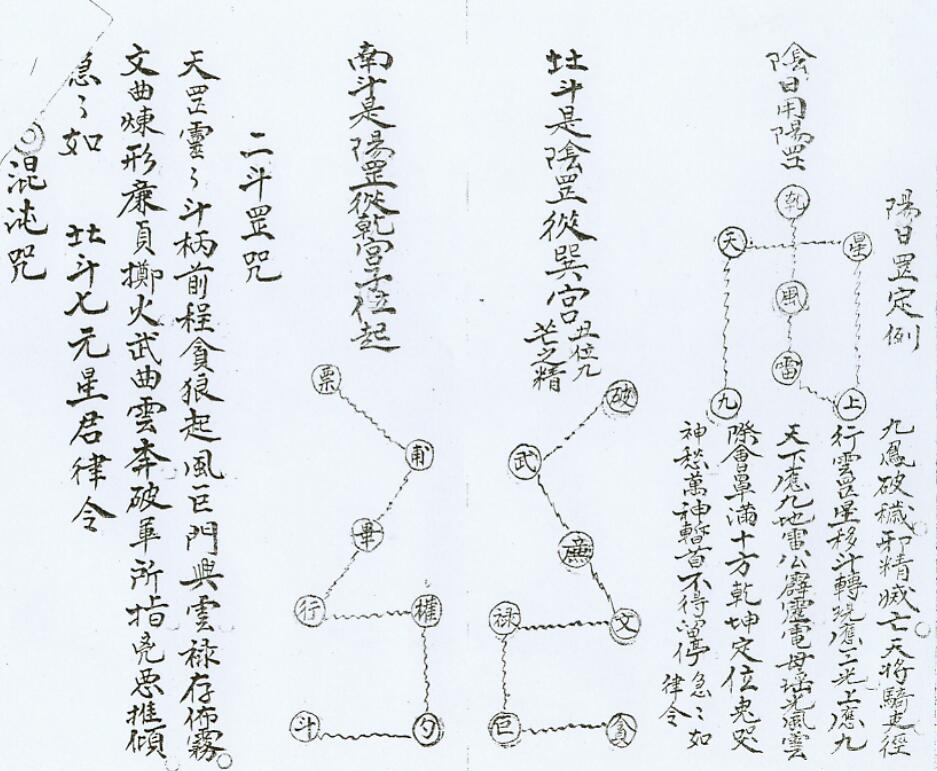 陽日罡定例
九鳳破穢邪精滅亡天將騎吏徑
行雲罡星移斗轉現應三光上應九
天下應九地雷公霹靂電母瑤光風雲
際會罩滿十方乾坤定位鬼哭
神愁萬神暫首不得留停急〻如
律令
陰日用陽罡
乾
天
星
風
雷
九
上
北斗是陰罡從巽宮丑位九
芒之精
破
武
廉
文
祿
巨
貪
南斗是陽罡從乾宮子位起
票
甫
畢
行
權
夕
斗
二斗罡咒
天罡靈〻斗柄前程貪狼起風巨門興雲祿存佈霧
文曲煉形廉貞擲火武曲雲奔破軍所指兇惡摧傾
急〻如 北斗七元星君律令
混沌咒